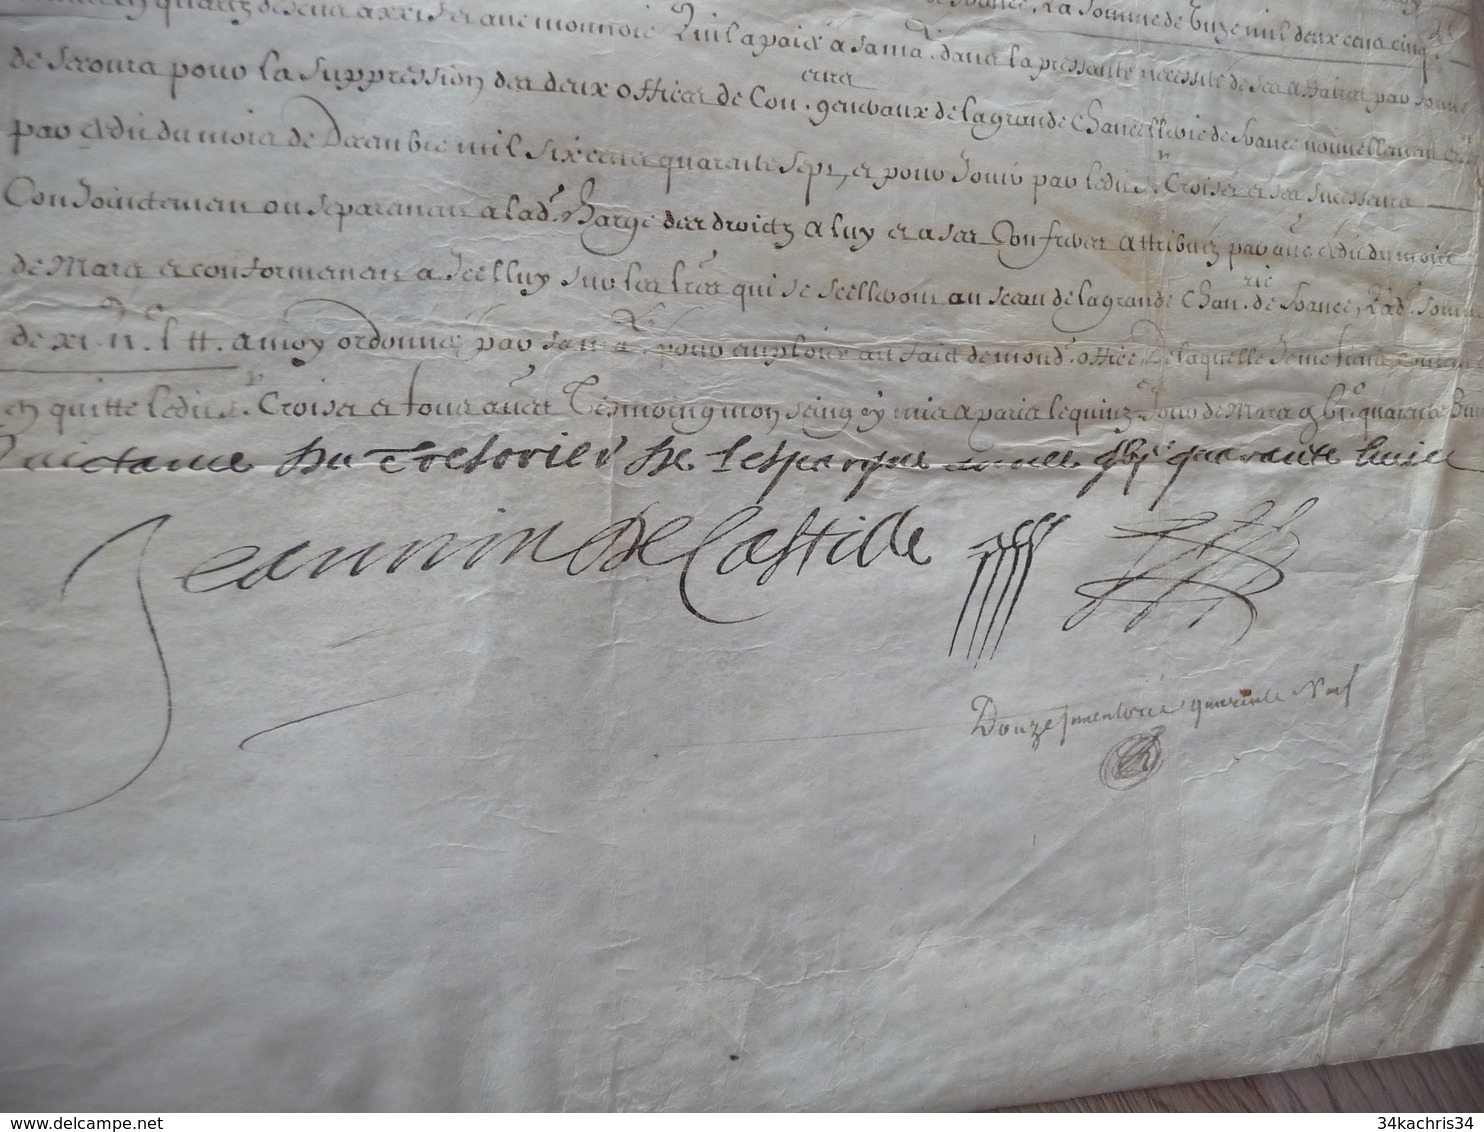 quartz descus a xxi s. piece monnoie Quil a paié a sa ma.té dans la pressante necessité de ses affaires par forme
france, La somme de unze mil deux cens cinq.te
de secours pour la suppression des deux offices de Con.ers generaux de la grande Chancellerie de france nouvellement
par edit du mois de Decembre mil six cens quarente sept, et pour Jouir par ledit s.r Croiset et ses successeurs
Conjoinctement ou separement a lad. charge des droictz a luy et a ses Confreres attribuez par au.e edit du mois
de Mars et conformement a Icelluy sur les lres qui se scelleront au sceau de la grande Chan.rie de france, Lad. somme
de xi.m ii.c l tt. a moy ordonnée par sa ma.té pour emploier au faict de mond. office, De laquelle Je me tiens contant
en quitte ledit s.r Croiset et tous au.es Tesmoing mon seing cy mis a paris le quinz.e Jour de Mars gbic quarente huit
Quictance du Tresorier de l'espargne gbic quarante huict
Jeannin de Castille
Douze Janvier quarente Neuf
34kachris34